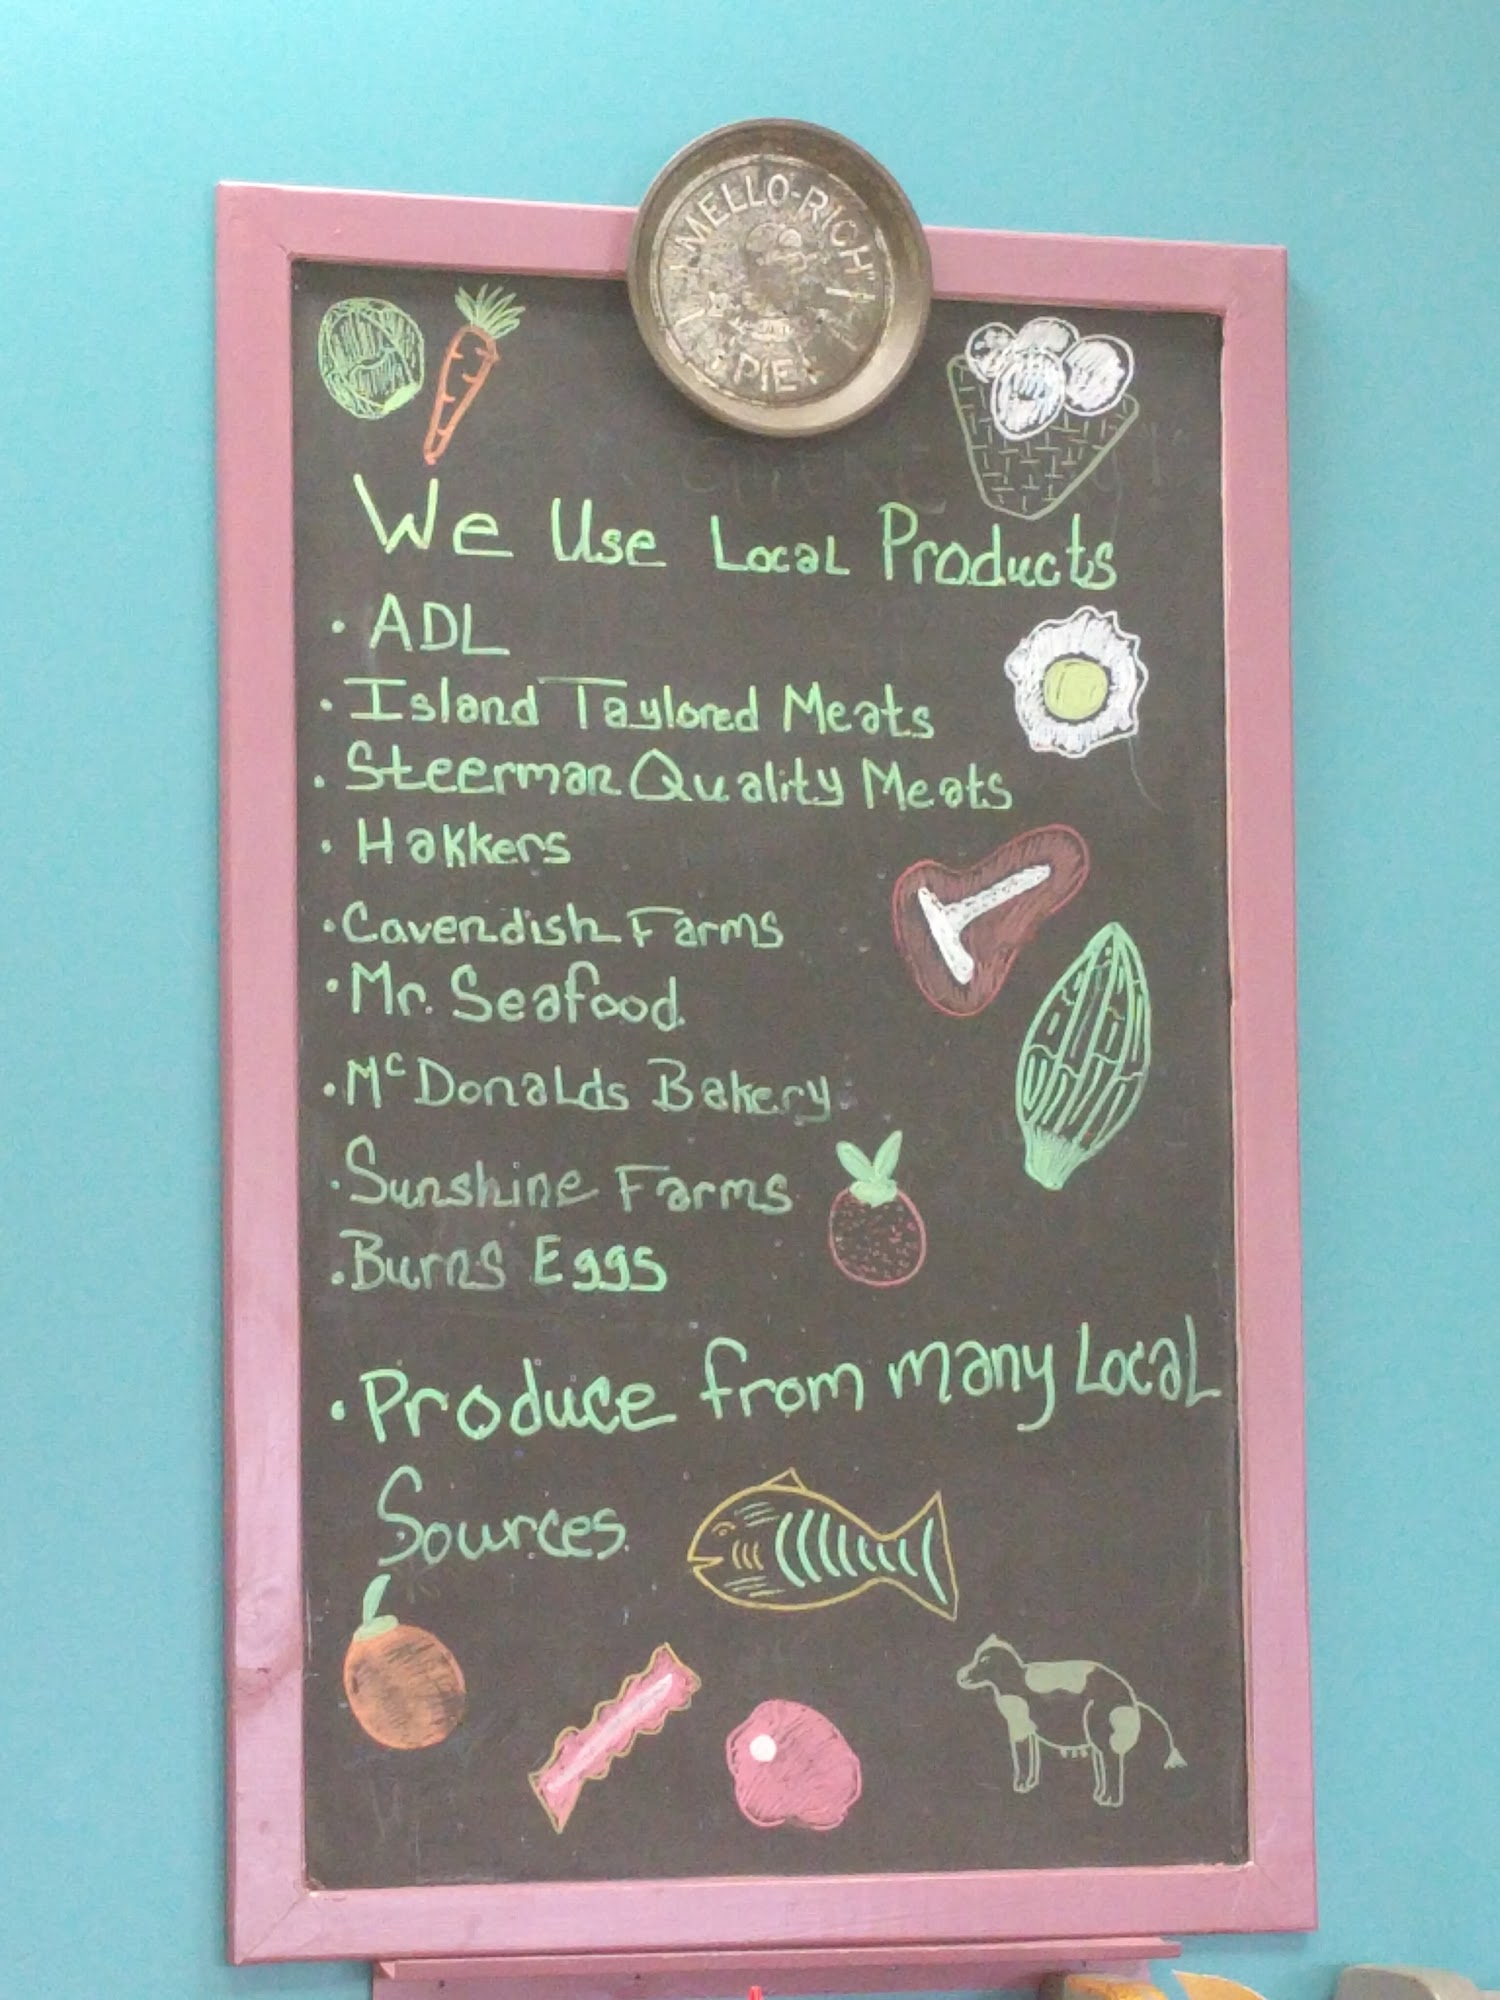 "MELLO-RICH"
PIE
We Use Local Products
• ADL
• Island Taylored Meats
• Steerman Quality Meats
• Hakkers
• Cavendish Farms
• Mr. Seafood
• McDonalds Bakery
• Sunshine Farms
• Burns Eggs
• Produce from many Local
Sources